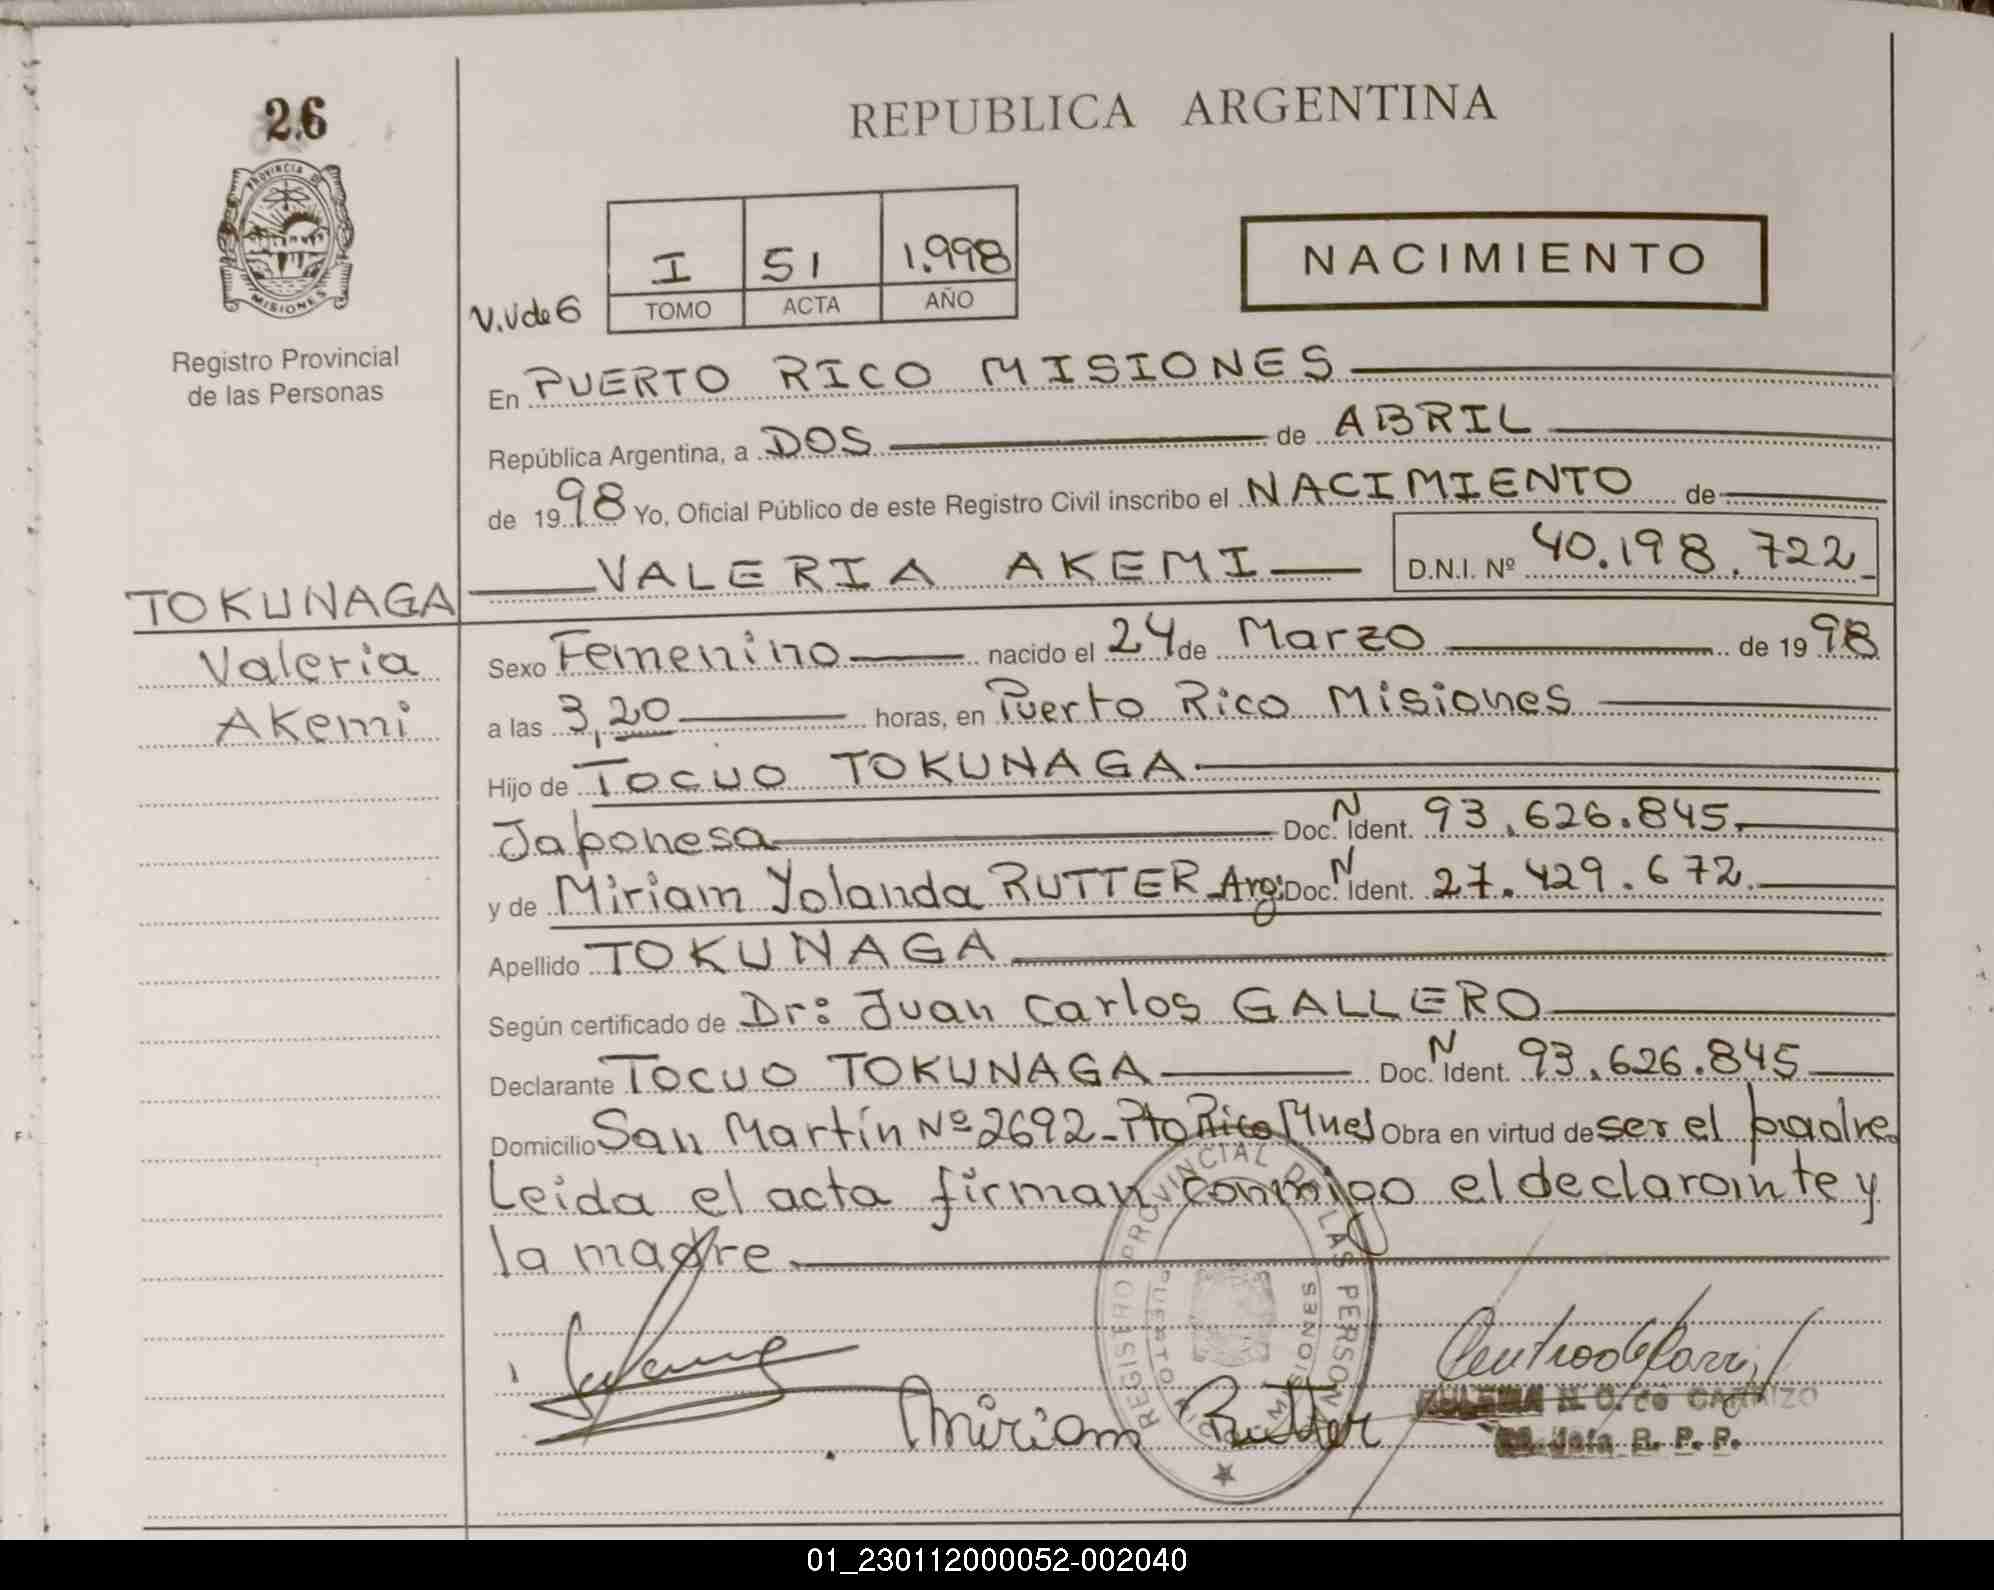 26
REPUBLICA ARGENTINA
PROVINCIA DE
MISIONES
Registro Provincial
de las Personas
V.V de 6
I 51 1.998
TOMO ACTA AÑO
NACIMIENTO
En PUERTO RICO MISIONES
República Argentina, a DOS de ABRIL
de 1998 Yo, Oficial Público de este Registro Civil inscribo el NACIMIENTO de
VALERIA AKEMI D.N.I. Nº 40.198.722
TOKUNAGA
Valeria
Akemi
Sexo Femenino nacido el 24 de Marzo de 1998
a las 3,20 horas, en Puerto Rico Misiones
Hijo de TOCUO TOKUNAGA
Japonesa Doc. N Ident. 93.626.845.
y de Miriam Yolanda RUTTER Arg: Doc. N Ident. 27.429.672.
Apellido TOKUNAGA
Según certificado de Dr: Juan Carlos GALLERO
Declarante TOCUO TOKUNAGA Doc. N Ident. 93.626.845
Domicilio San Martín Nº 2692-Pto Rico Mnes Obra en virtud de ser el padre.
Leida el acta firman conmigo el declarante y
la madre.
REGISTRO PROVINCIAL DE LAS PERSONAS
PUERTO RICO MISIONES
Miriam Rutter
N. O. de CARRIZO
Jefa R. P. P.
01_230112000052-002040